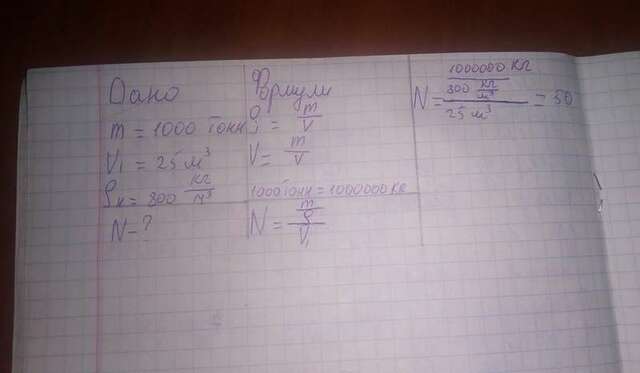 Дано
m = 1000 тонн
V₁ = 25 м³
ρк = 800 кг/м³
N - ?
Формули
ρ = m/V
V = m/V
1000 тонн = 1000000 кг
N = (m/ρ)/V₁
N = (1000000 кг/800 кг/м³)/25 м³ = 50